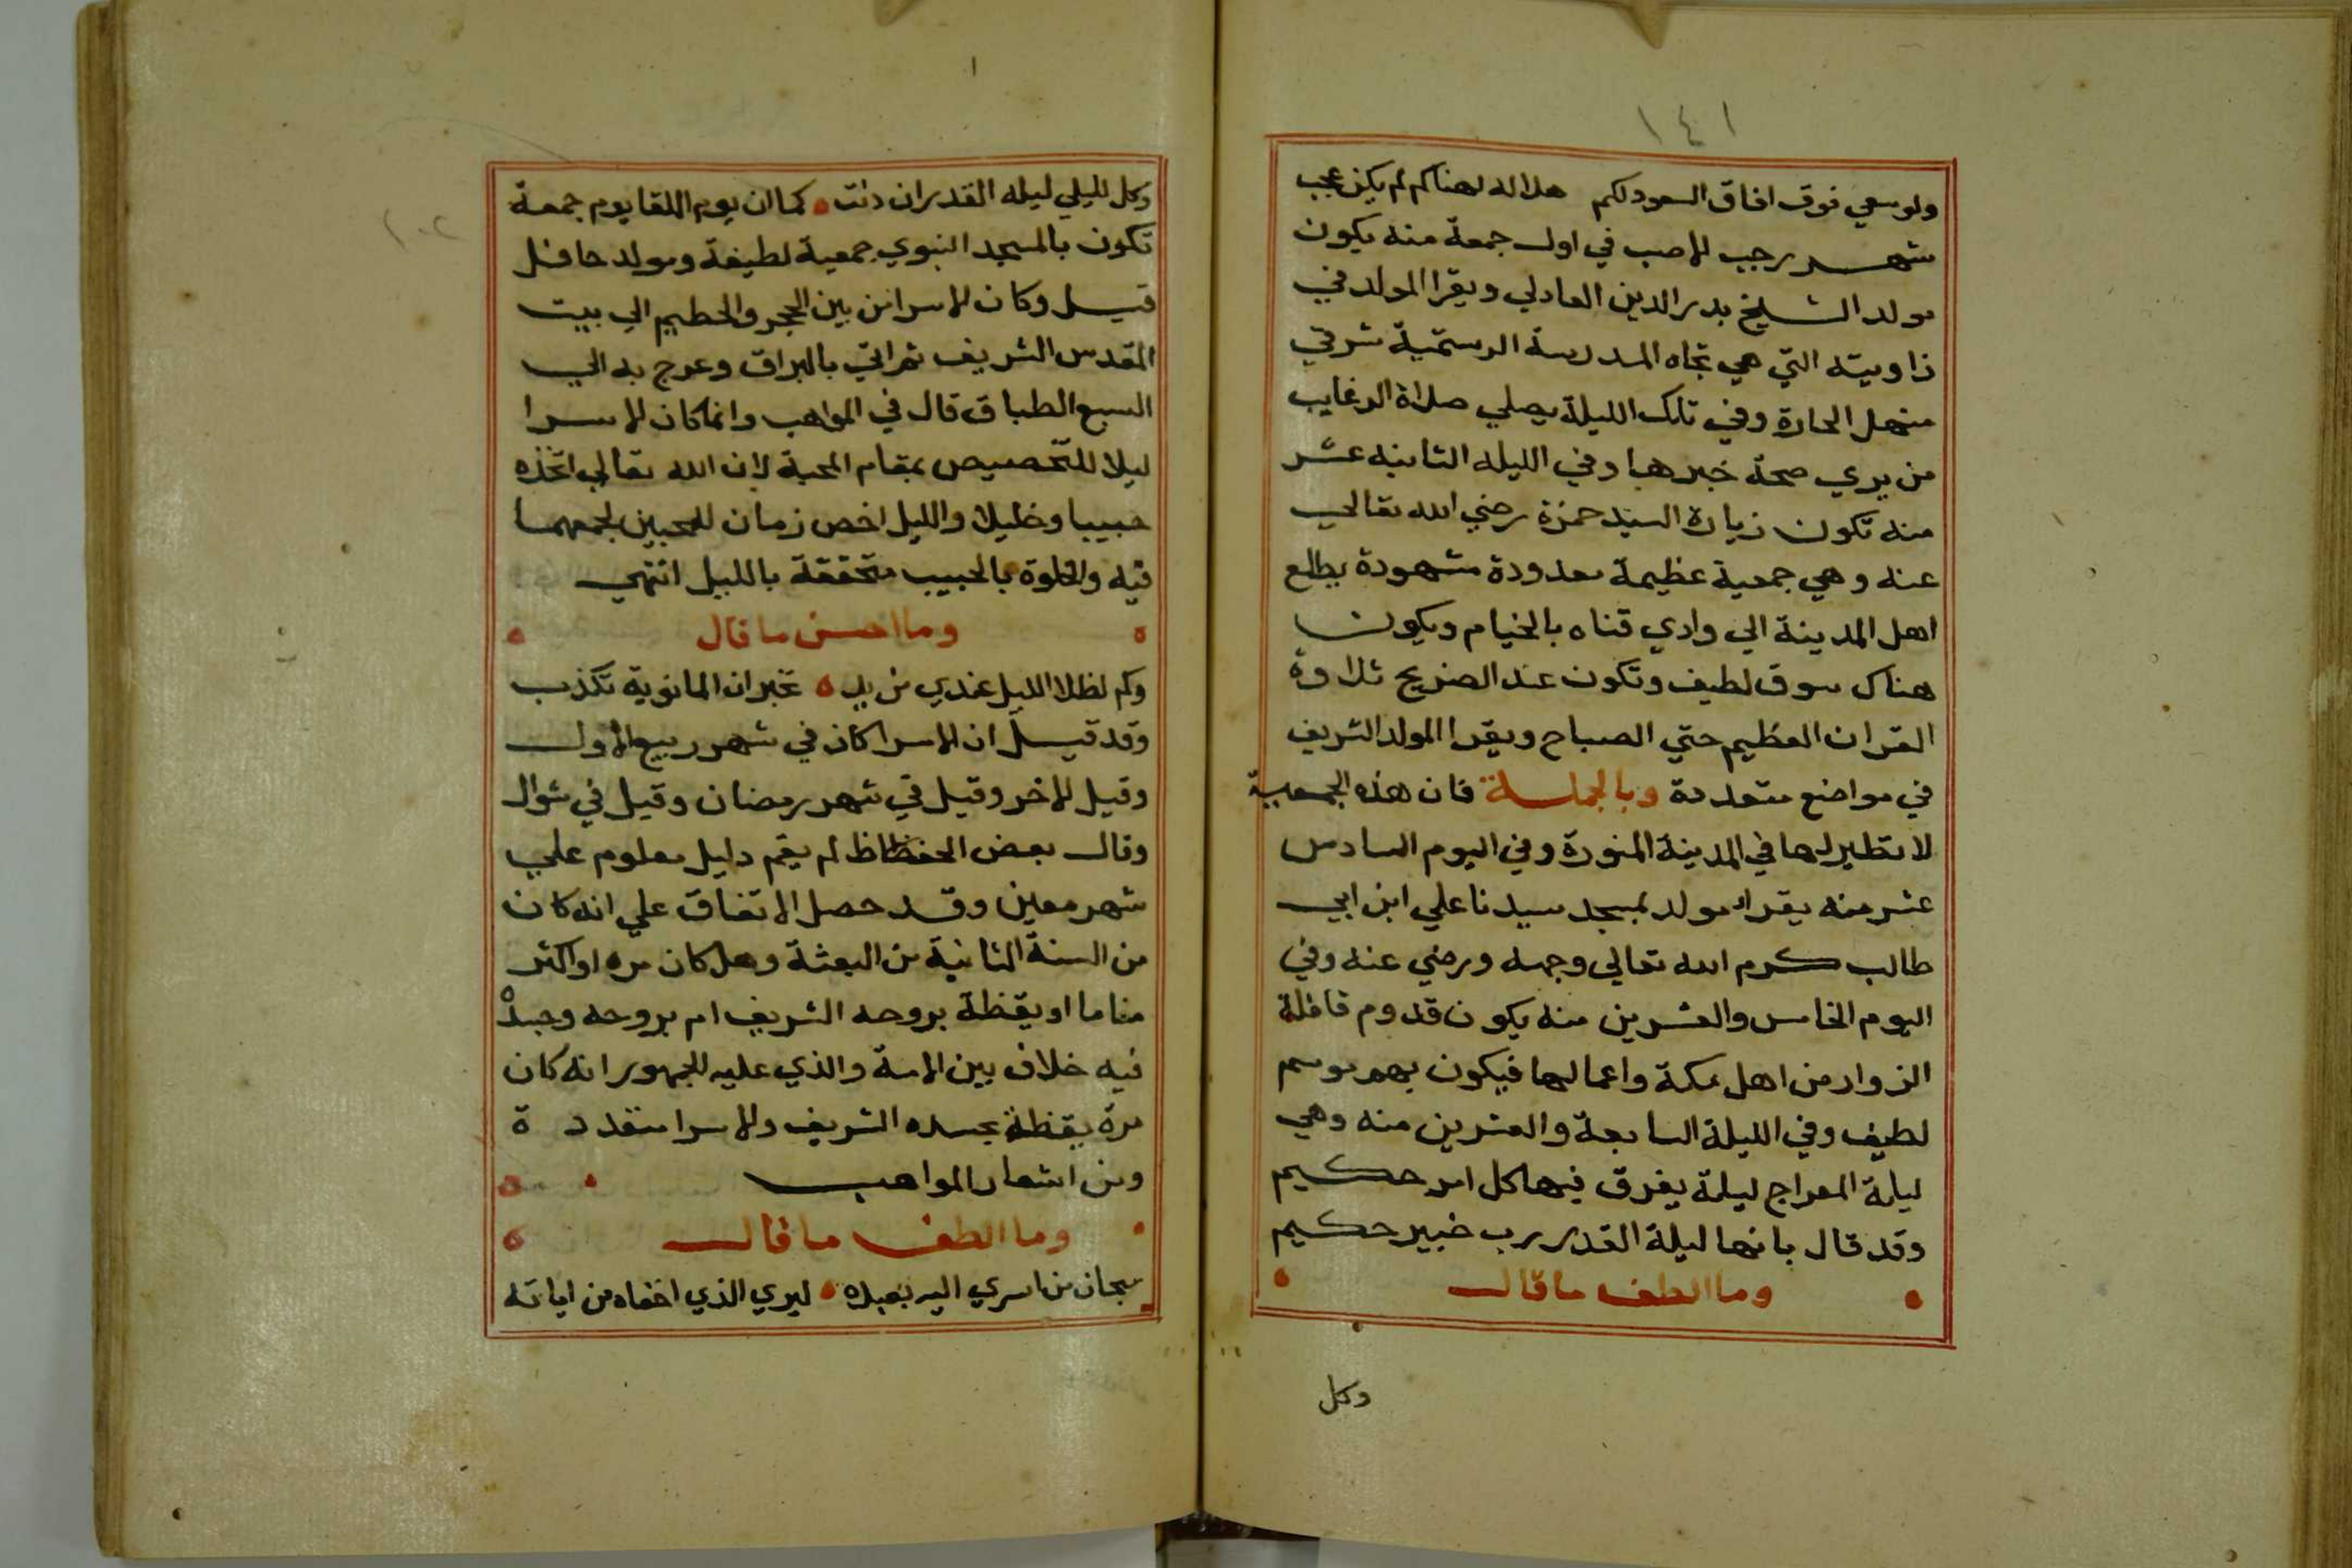 ١٤١
ولو سعي فوق افاق السعود لكم هلاله لهناكم لم يكن عجب
شهر رجب الاصب في اول جمعة منه يكون
مولد الشيخ بدر الدين العادلي ويقرا المولد في
زاويته التي هي تجاه المدرسة الرستمية شرقي
منهل الحارة وفي تلك الليلة يصلي صلاة الرغايب
من يري صحة خبرها وفي الليله الثانيه عشر
منه تكون زيارة السيد حمزة رضي الله تعالي
عنه وهي جمعية عظيمة معدودة مشهودة يطلع
اهل المدينة الي وادي قناه بالخيام ويكون
هناك سوق لطيف وتكون عند الضريح تلاوة
القران العظيم حتي الصباح ويقرا المولد الشريف
في مواضع متعددة وبالجملة فان هذه الجمعية
لا نظير لها في المدينة المنورة وفي اليوم السادس
عشر منه يقراء مولد بمسجد سيدنا علي ابن ابي
طالب كرم الله تعالي وجهه ورضي عنه وفي
اليوم الخامس والعشرين منه يكون قدوم قافلة
الزوار من اهل مكة واعمالها فيكون بهم موسم
لطيف وفي الليلة السابعة والعشرين منه وهي
ليلة المعراج ليلة يفرق فيها كل امر حكيم
وقد قال بانها ليلة القدر رب خبير حكيم
وما الطف ما قال
وكل
١٠٢
وكل الليلي ليله القدر ان دنت كما ان يوم اللقا يوم جمعة
تكون بالمسجد النبوي جمعية لطيفة ومولد حافل
قيل وكان الاسرا من بين الحجر والحطيم الي بيت
المقدس الشريف ثم اتي بالبراق وعرج به الي
السبع الطباق قال في المواهب وانما كان الاسرا
ليلا للتخصيص بمقام المحبة لان الله تعالي اتخذه
حبيبا وخليلا والليل اخص زمان للمحبين لجمعهما
فيه والخلوة بالحبيب متحققة بالليل انتهي
وما احسن ما قال
وكم لظلا الليل عندي من يد تخبر ان المانوية تكذب
وقد قيل ان الاسرا كان في شهر ربيع الاول
وقيل الاخر وقيل في شهر رمضان وقيل في شوال
وقال بعض الحفظاظ لم يقم دليل معلوم علي
شهر معين وقد حصل الاتفاق علي انه كان
من السنة الثانية من البعثة وهل كان مره او اكثر
مناما او يقظة بروحه الشريف ام بروحه وجسده
فيه خلاف بين الامة والذي عليه الجمهور انه كان
مرة يقظة بجسده الشريف والاسرا متعدد ة
ومن اشعار المواهب
وما الطف ما قال
سبحان من اسري اليه بعبده ليري الذي اخفاه من اياته